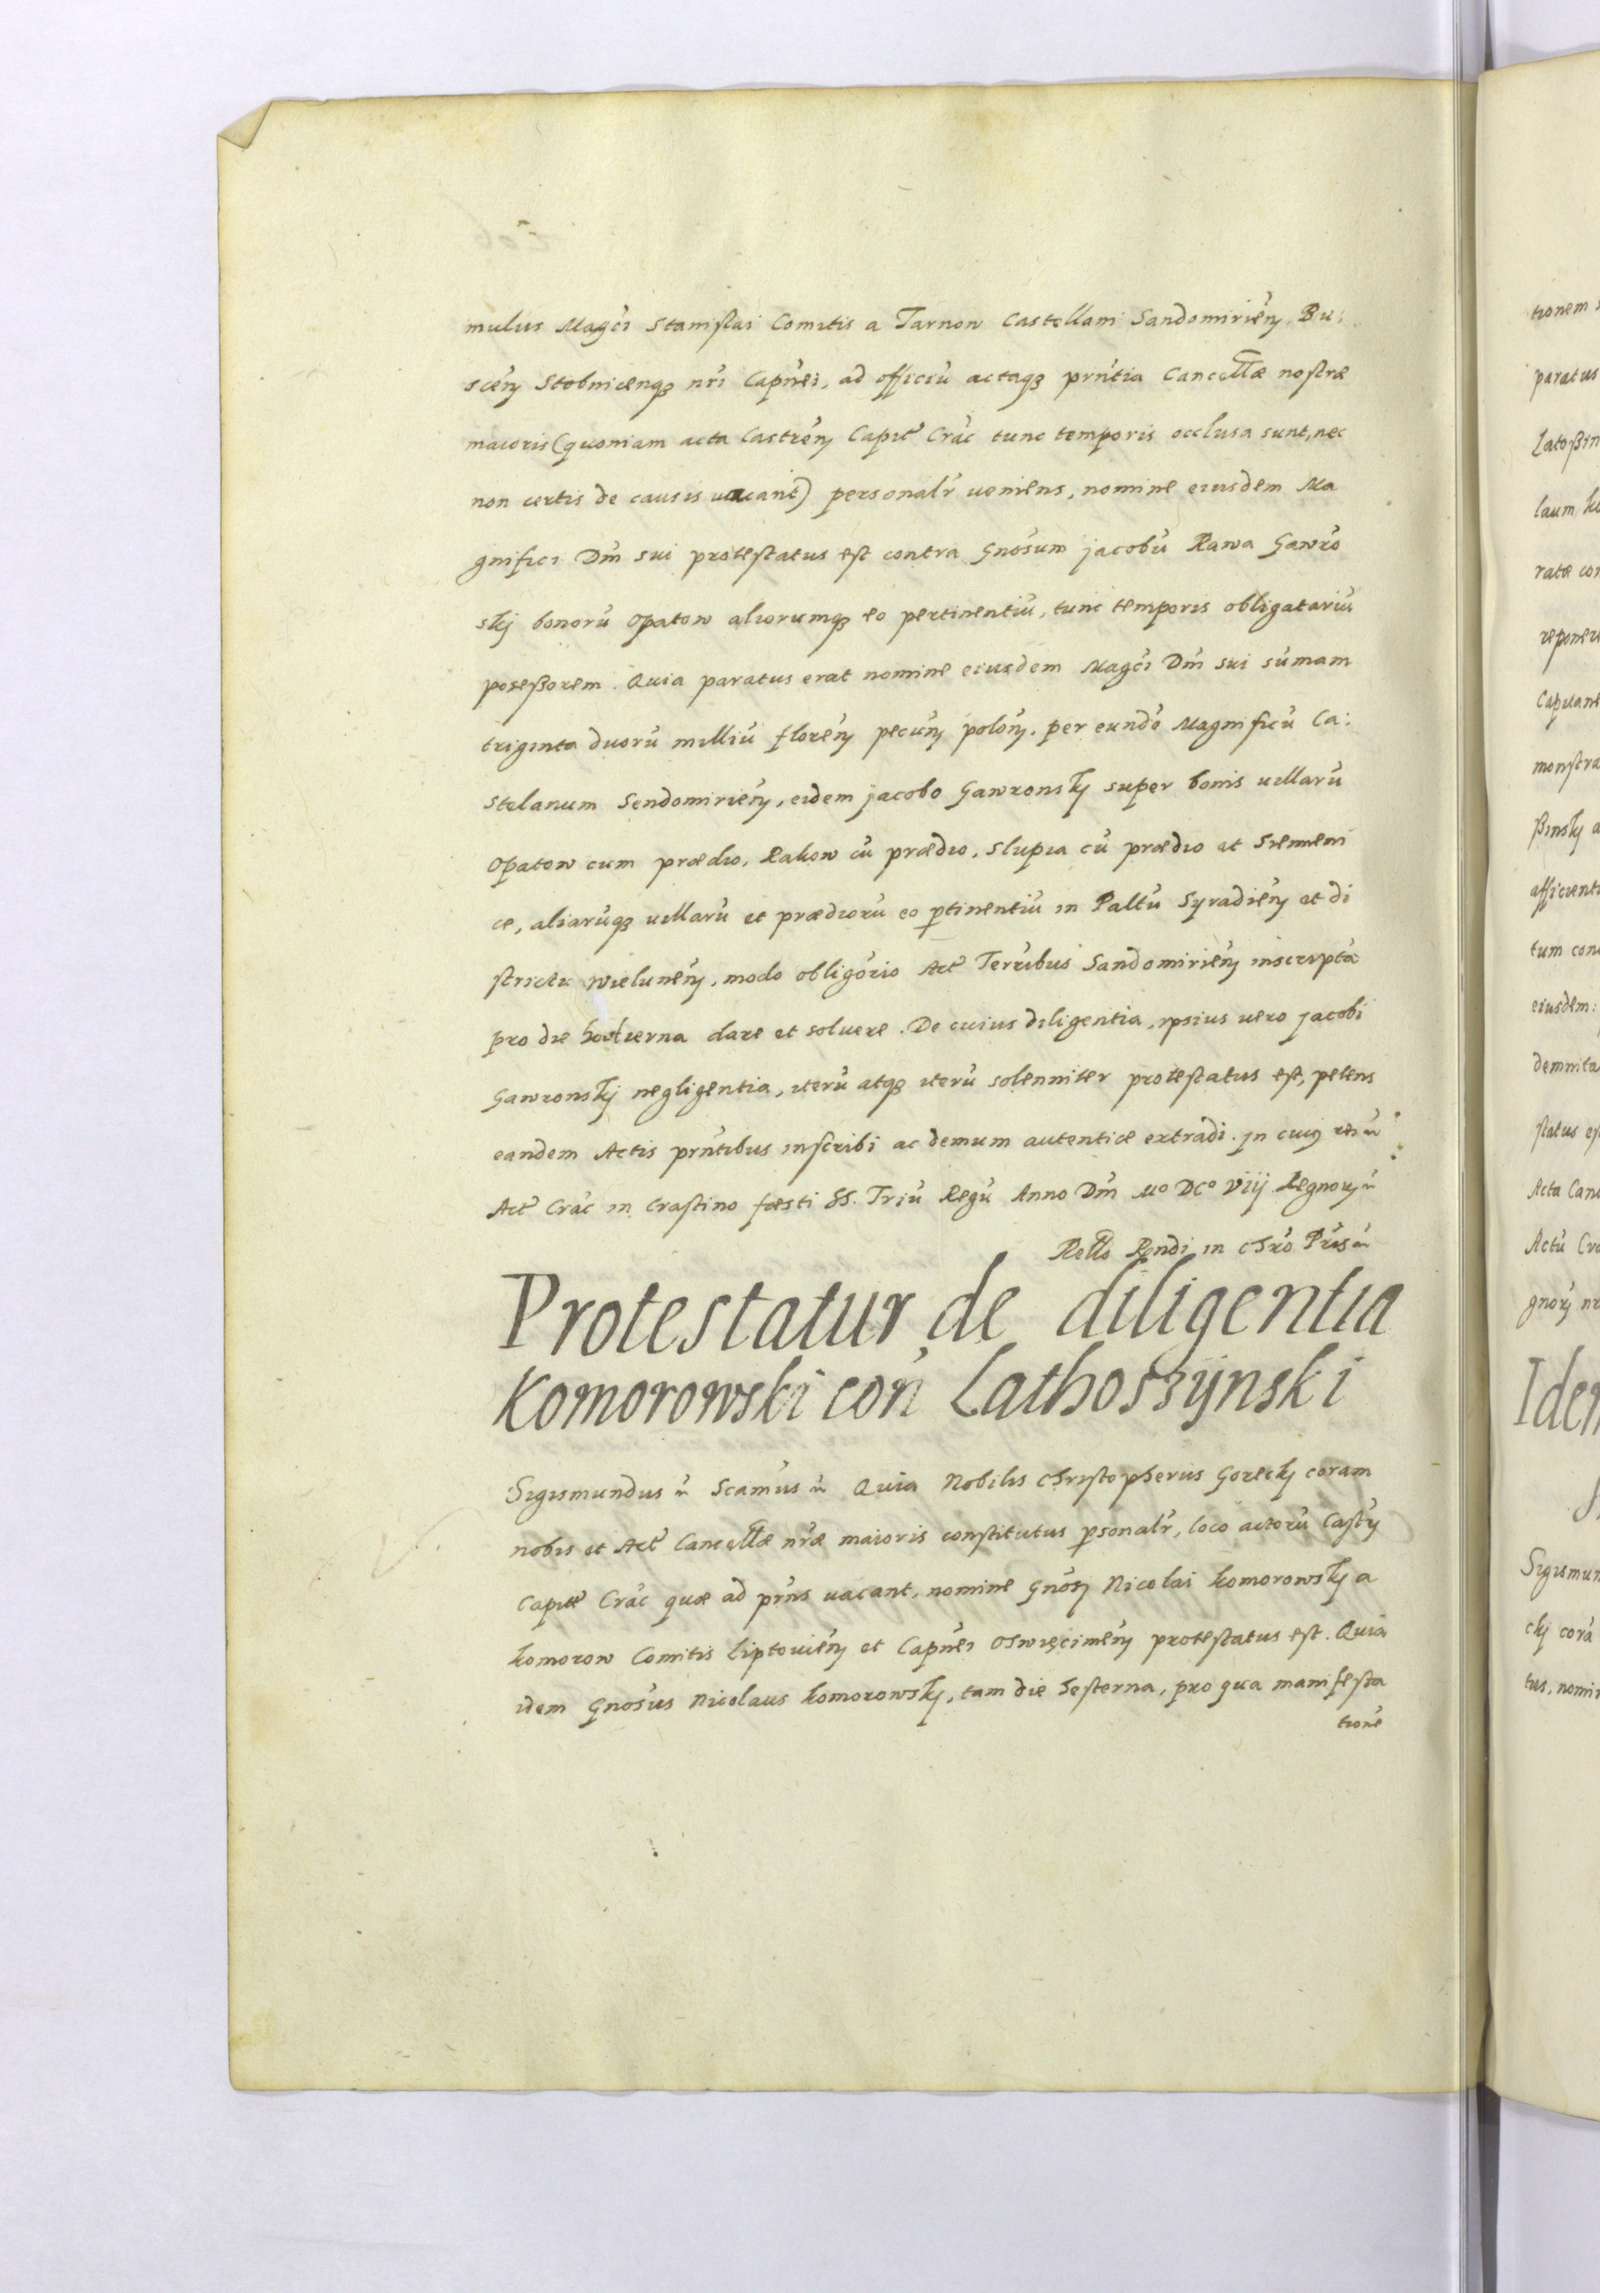 mulus Magci Stanislai Comitis a Tarnow Castellani Sandomirien, Bu:
scen Stobnicenq3 nri Capnei, ad officiu actaq3 prntia Cancellæ nostræ
maioris (quoniam acta Castren Capit Crac tunc temporis occlusa sunt, nec
non certis de causis uacant) personalr ueniens, nomine eiusdem Ma
gnifici Dni sui protestatus est contra Gnosum Jacobu Rawa Gawro
skj bonoru Opatow aliorumq3 eo pertinentiu, tunc temporis obligatariu
poseßorem. Quia paratus erat nomine eiusdem Magci Dni sui sumam
triginta duoru milliu floren pecun polon. per eundo Magnificu Ca:
stelanum Sendomirien, eidem Jacobo Gawronskj super bonis uillaru
Opatow cum prædio, Rakow cu prædio, Slupia cu prædio et Siemieni
ce, aliaruq3 uillaru et prædioru eo ptinentiu in Paltu Syradien et di
strictu Wielunen, modo obligorio Act Terribus Sandomirien inscripta
pro die hodierna dare et soluere. De cuius diligentia, ipsius uero Jacobi
Gawronskj negligentia, iteru atq3 iteru solenniter protestatus est, petens
eandem Actis prntibus inscribi ac demum autentice extradi. Jn cuig rei
Act Crac in Crastino fæsti SS. Triu Regu Anno Dni Mo DCo Viij Regnorj
Rello Rendi in Chro Pris
Protestatur de diligentia
Komorowski con Lathoszijnski
Sigismundus Scamus Quia Nobilis Christopherus Goreckj coram
nobis et Act Cancellæ nræ maioris constitutus psonalr, loco actoru Castr
Capit Crac quæ ad prns uacant, nomine Gnosi Nicolai Komorowskj a
Komorow Comitis Liptouien et Capnei Oswięcimen protestatus est. Quia
idem Gnosus Nicolaus Komorowskj, tam die hesterna, pro qua manifesta
tione
tionem
paratus
Latoßin
laum
ratæ con
reponere
Capitane
monstra
ßinskj a
afficienti
tum conc
eiusdem:
demnita
status es
Acta Canc
Actu Cra
gnorj nr
Iden
Sigismun
ckj cora
tus, nomin